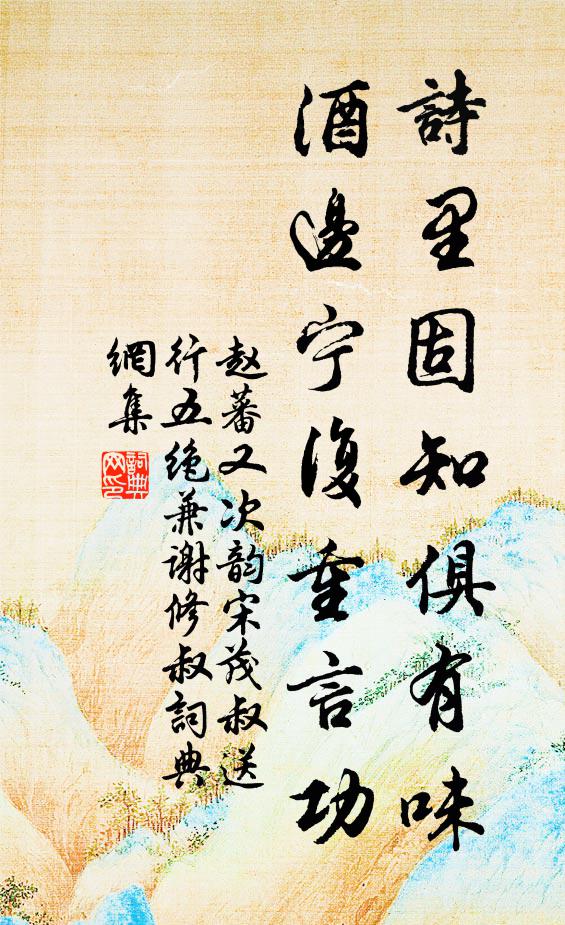 詩里固知俱有味
酒邊宁復重言功
赵蕃又次韵宋茂叔送
行五绝兼谢修叔詞典
網集
詞典
网印